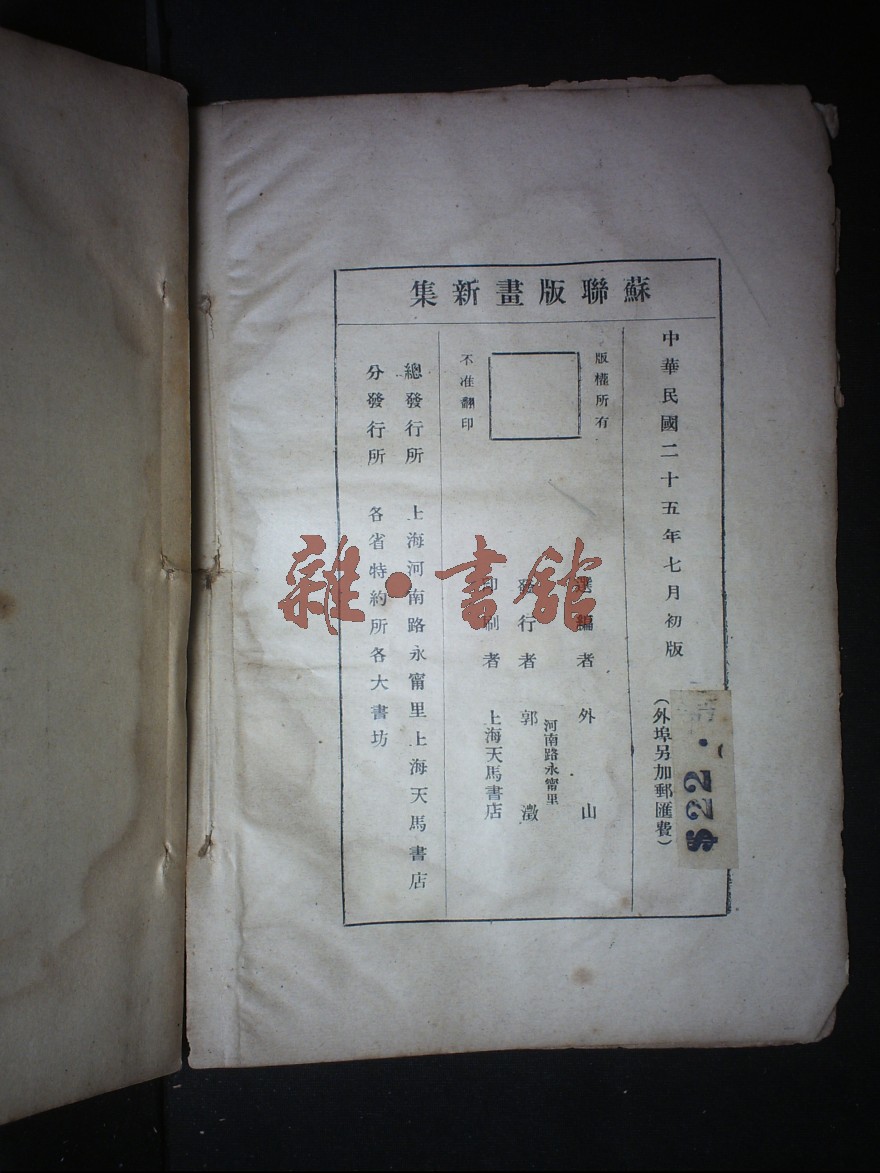 蘇聯版畫新集
中華民國二十五年七月初版
（外埠另加郵匯費）
$22.
版權所有
不准翻印
選編者 外山
發行者 河南路永甯里 郭澂
印刷者 上海天馬書店
總發行所 上海河南路永甯里上海天馬書店
分發行所 各省特約所各大書坊
雜·書館